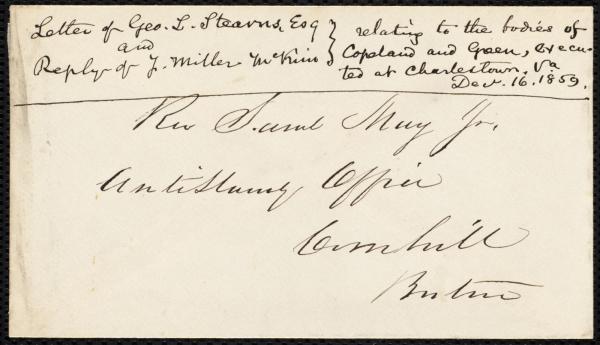 Letter of Geo. L. Stearns, Esq
and
Reply of J. Miller McKim
relating to the bodies of
Copeland and Green, execu-
ted at Charlestown, Va
Dec. 16. 1859.
Rev Saml May Jr.
AntiSlavery Office
Cornhill
Boston